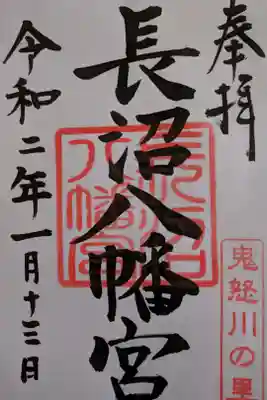 奉拝
長沼八幡宮
長沼八幡宮
鬼怒川の里
令和二年一月十三日